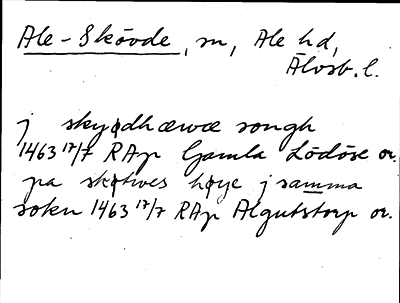 Ale-Skövde, sn, Ale hd,
Älvsb. l.
j skyødhæwæ songh
1463 17/7 RAp Gamla Lödöse or.
pa skøtwes høye j samma
sokn 1463 17/7 RAp Algutstorp or.